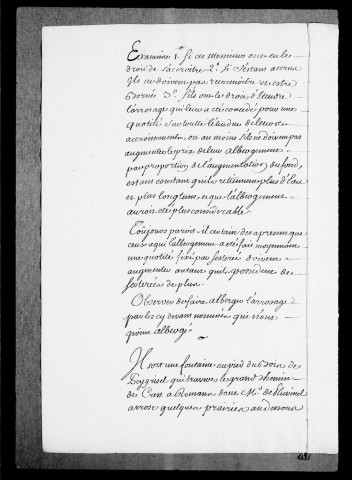 Examiner 1° Si ces messieurs ont eu le
droit de s'accroitre 2° Si s'etans accrus
Ils ne doivent pas reconnoitre et estre
bornés 3° S'ils ont le droit d'etendre
l'arrosage qui leur a eté concedé pour une
quotité sur toutte l'etendue de leurs
accroissemens, ou au moins s'ils ne doivent pas
augmenter le prix de leur albergement
par proportion de l'augmentation du fond,
est ans constant qu'ils retiennent plus d'eau
et plus longtems, et que l'albergement
auroit eté plus considerable.
Toujours paroit-il certain des apresent que
ceux a qui l'albergement a eté fait moyennant
une quotité fixé par seterée doivent
augmenter autant qu'ils possedent de
seterées de plus.
Observer de faire alberger l'arrosage
par les cy devant nommés qui n'ont
point albergé
Il sort une fontaine au pied du bois de
Peygrisel qui traverse le grand chemin
de Crest a Romans dont Mr. de
arrose quelques prairies au dessous